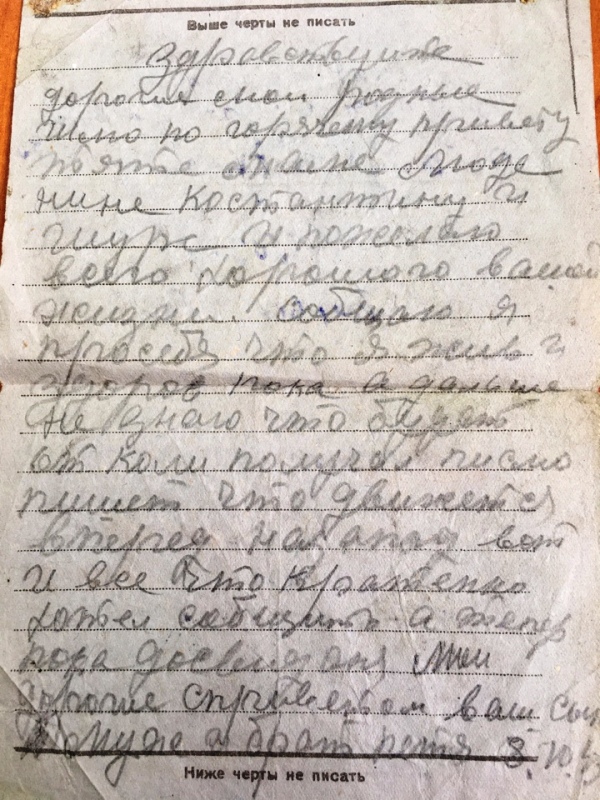 Выше черты не писать
Здравствуйте
дорогие мои родные
шлю по горячему привету
Нине Костантину и
Шуре и пожелаю
всего хорошего вашой
жизни. сообщаю я
про себя что я жив и
здоров пока а дальше
не знаю что будет
от Коли получал писмо
пишет что движется
вперед на запад вот
и все что кратенко
хотел сообщить а тепер
пока досвидания мои
дорогие с приветом ваш сын
муж и брат петя 8.10.43
Ниже черты не писать